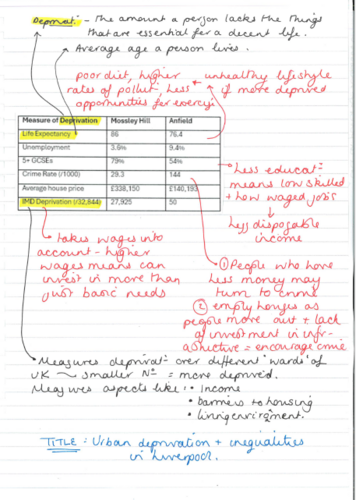 Deprivatⁿ - The amount a person lacks the things
that are essential for a decent life.
Average age a person lives.
poor diet, higher
rates of pollutⁿ, less
opportunities for exercise
unhealthy lifestyle
if more deprived
Measure of Deprivation Mossley Hill Anfield
Life Expectancy 86 76.4
Unemployment 3.6% 9.4%
5+ GCSEs 79% 54%
Crime Rate (/1000) 29.3 144
Average house price £338,150 £140,193
IMD Deprivation (/32,844) 27,925 50
Less educatⁿ
means low skilled
+ low waged jobs
Less disposable
income
takes wages into
account - higher
wages means can
invest in more than
just basic needs
① People who have
less money may
turn to crime
② empty houses as
people move out + lack
of investment in infr-
astructure = encourage crime
Measures deprivatⁿ over different 'wards' of
UK ~ smaller Nº = more deprived.
Measures aspects like: • Income
• barriers to housing
• living environment.
TITLE: Urban deprivation + inequalities
in Liverpool.